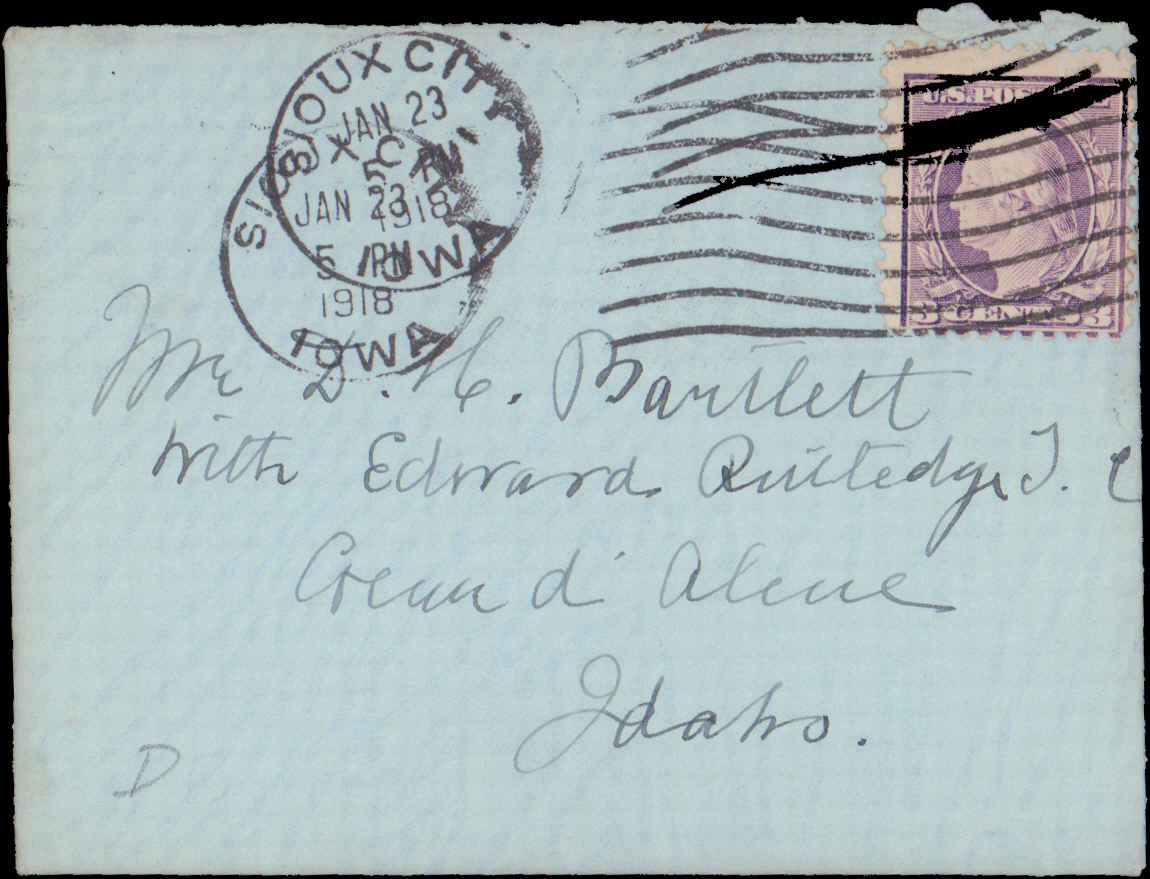 SIOUX CITY
JAN 23
5 PM
1918
IOWA
SIOUX C
JAN 23
5 PM
1918
IOWA
U.S. POS
3 CEN 3
Mr D. H. Bartlett
With Edward Rutledge T. C
Coeur d' Alene
Idaho.
D